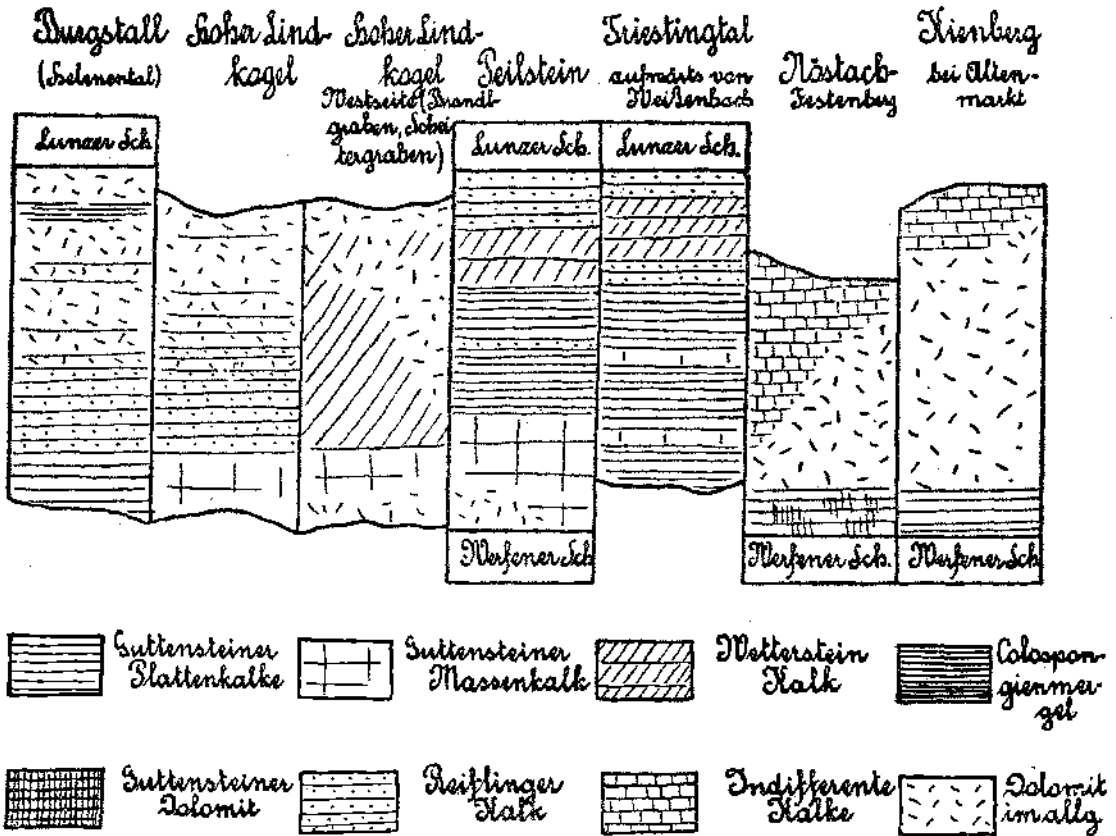 Burgstall
(Helenental)
Hoher Lind-
kogel
Hoher Lind-
kogel
Westseite (Brandt-
graben, Schei-
tergraben)
Peilstein
Triestingtal
aufwärts von
Weißenbach
Nöstach-
Festenberg
Kienberg
bei Alten-
markt
Lunzer Sch.
Lunzer Sch.
Lunzer Sch.
Werfener Sch.
Werfener Sch.
Werfener Sch.
Guttensteiner
Plattenkalke
Guttensteiner
Massenkalk
Wetterstein
Kalk
Colospon-
gienmer-
gel
Guttensteiner
Dolomit
Reiflinger
Kalk
Indifferente
Kalke
Dolomit
im allg.